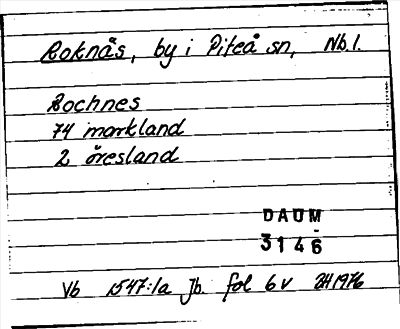 Roknäs, by i Piteå sn, Nb.l.
Rochnes
74 markland
2 öresland
DAUM
3146
Vb 1547:1a Jb. fol 6 v 1976